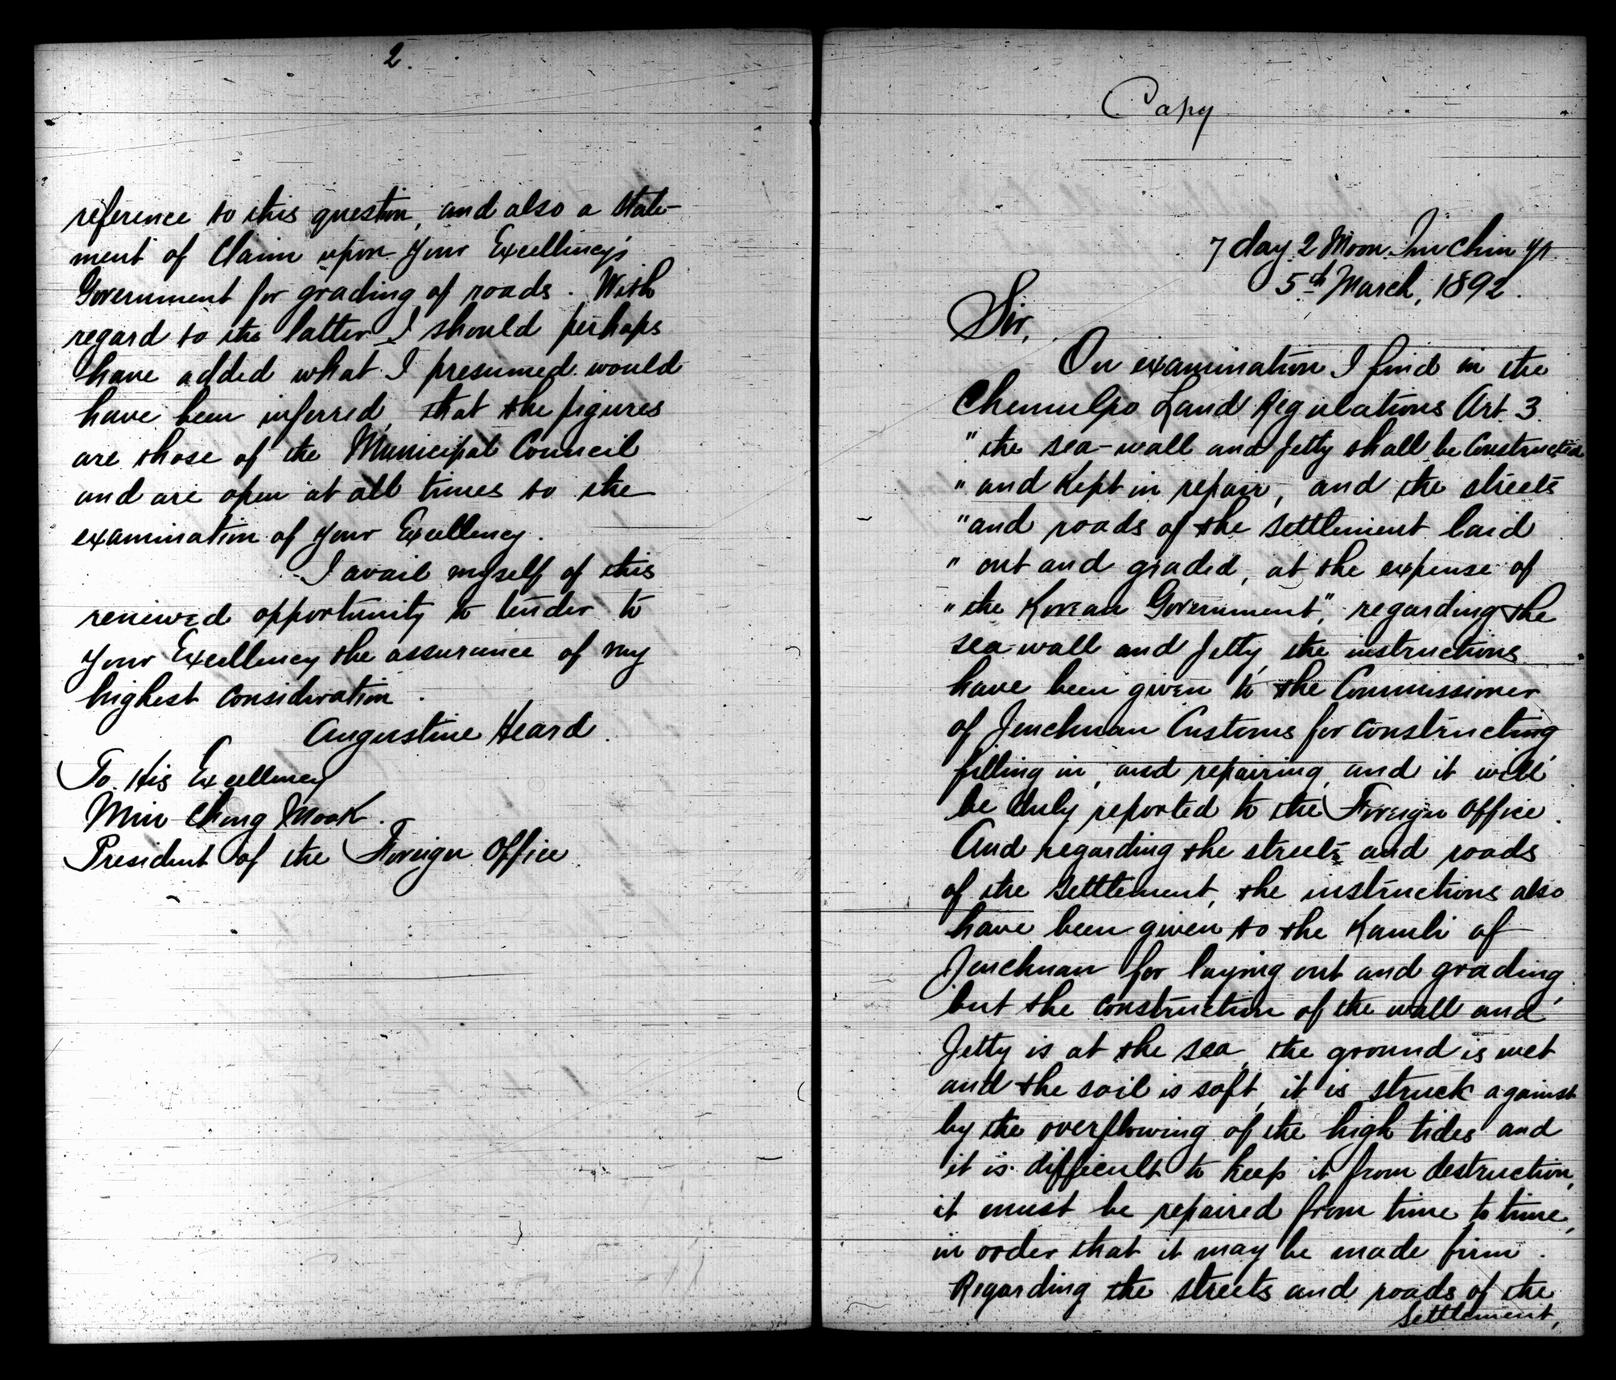 2.
reference to this question, and also a state-
ment of Claim upon Your Excellency's
Government for grading of roads. With
regard to the latter I should perhaps
have added what I presumed would
have been inferred that the figures
are those of the Municipal Council
and are open at all times to the
examination of Your Excellency.
I avail myself of this
renewed opportunity to tender to
Your Excellency the assurance of my
highest consideration.
Augustine Heard.
To His Excellency
Min Chong Mook.
President of the Foreign Office
Copy
7 day 2 Moon Im Chin yr.
5th March, 1892.
Sir,
On examination I find in the
Chemulpo Land Regulations Art 3
"the sea-wall and Jetty shall be Constructed
"and Kept in repair, and the streets
"and roads of the settlement laid
"out and graded, at the expense of
"the Korean Government", regarding the
sea-wall and Jetty, the instructions
have been given to the Commissioner
of Jenchuan Customs for constructing
filling in, and repairing, and it will
be duly reported to the Foreign Office.
And regarding the streets and roads
of the settlement, the instructions also
have been given to the Kamli of
Jenchuan for laying out and grading,
but the construction of the wall and
Jetty is at the sea, the ground is wet
and the soil is soft, it is struck against
by the overflowing of the high tides and
it is difficult to keep it from destruction,
it must be repaired from time to time,
in order that it may be made firm.
Regarding the streets and roads of the
settlement,